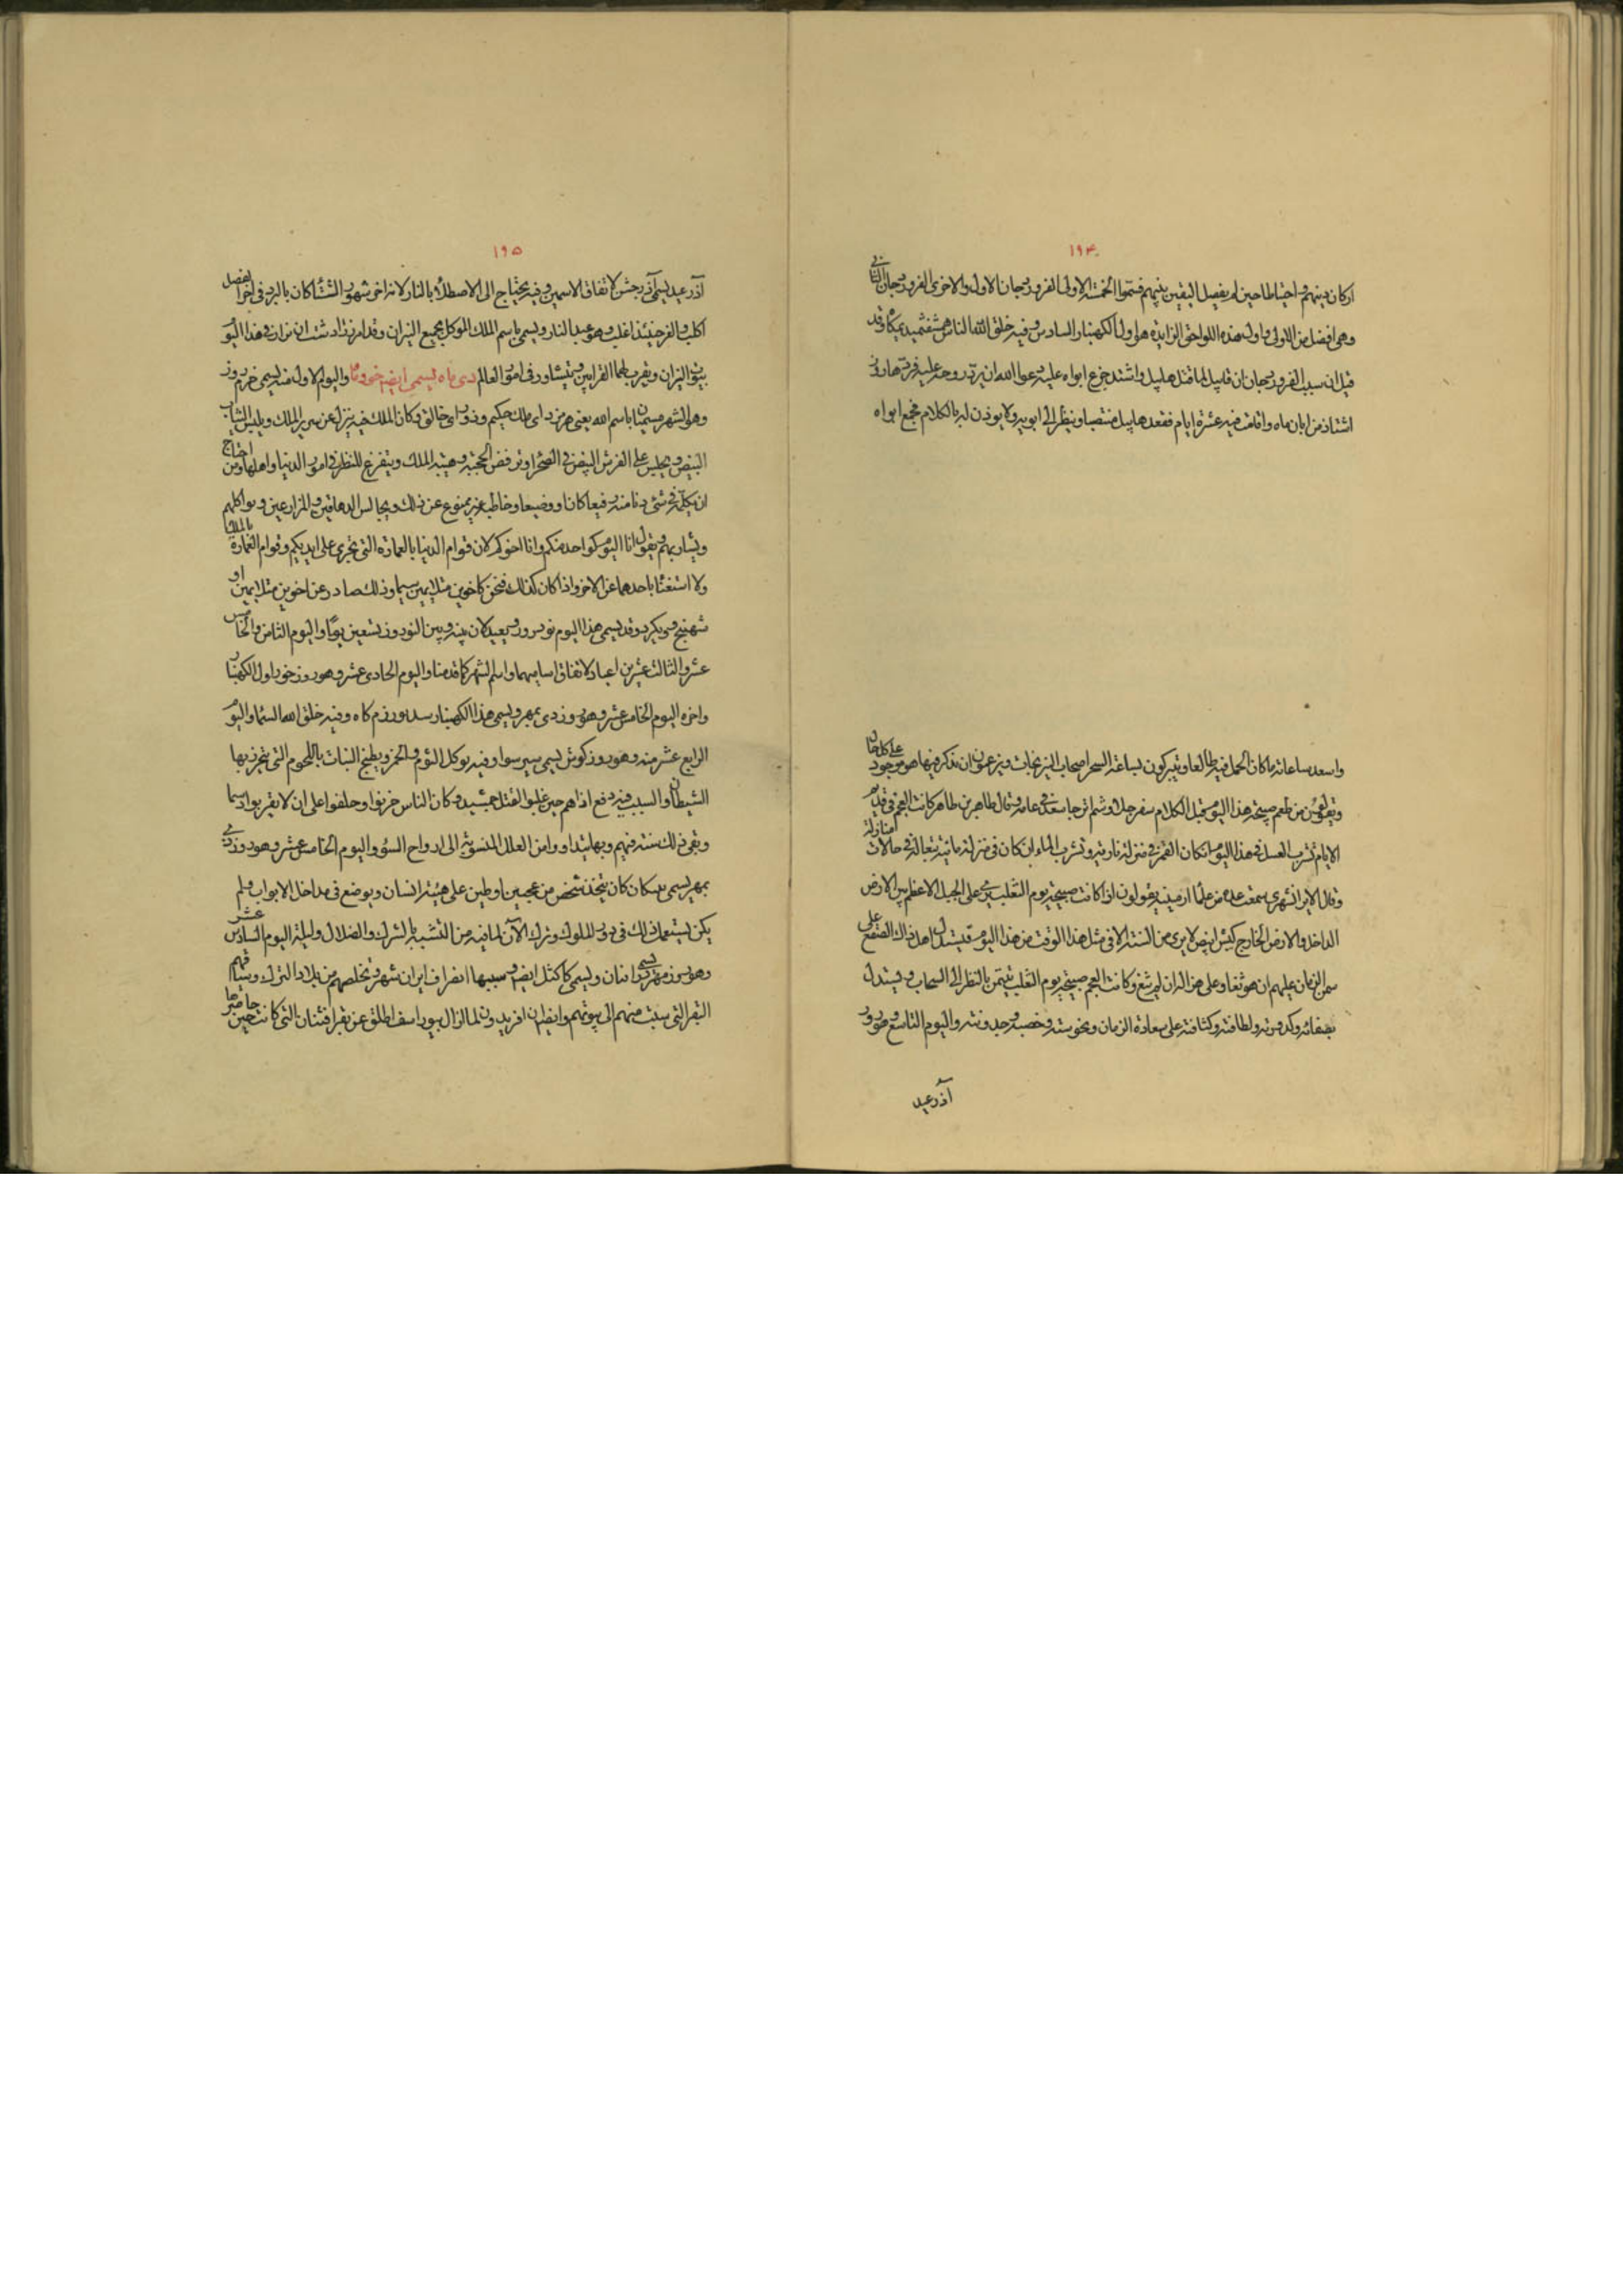 ۱۹۴
اركان دينهم واحتياطا حين لم يفصل اليقين بينهم فسموا الخمسة الاولى الفروردجان الاول والاخرى الفروردجان الثانى
وهى افضل من الاولى واول هذه اللواحق الزايدة هو اول الكهنبار السادس وفيه خلق الله الناس وقد
قيل ان سبب الفروردجان ان قابيل لما قتل هابيل واشتد جزع ابواه عليه دعوا الله ان يرد روحه عليه فردها روز
اشتاذ من ابان ماه واقامت فيه عشرة ايام فقعد هابيل منتصبا وينظر الى ابويه ولا يوذن له بالكلام فجمع ابواه
واسعد ساعاته ما كان الحمل فيه طالعا ويتبركون بساعة السحر اصحاب النيرنجات ويزعمون ان ما ذكر فيها هو موجود على كل حال
ويتفولون من طعم صبيحة هذا اليوم قبل الكلام سفرجلا وشم اترجا سعد فى عامه وقال طاهر بن طاهر كانت العجم فى قديم
الايام تشرب العسل فى هذا اليوم ان كان القمر فى منزلة نارية وتشرب الماء ان كان فى منزلة مائية متعالة فى حالات منازله
وقال الايرانشهرى سمعت عدة من علماء ارمينيه يقولون اذا كانت صبيحة يوم الثعلب يرى على الجبل الاعظم بين الارض
الداخلة والارض الخارجة كبش ابيض لا يرى من السنة الا فى مثل هذا الوقت من هذا اليوم فيستدل اهل ذلك الصقع على
سمن الزمان عليهم ان هو ثغا وعلى هزال ان لم يثغ وكانت العجم صبيحة يوم الثعلب تتيمن بالنظر الى السحاب ويستدل
بصفائه وكدورته ولطافته وكثافته على سعادة الزمان ونحوسته وخصبه وجدوبته واليوم التاسع وهو روز
آذر عيد
۱۹۵
آذر عيد يسمى آذرجشن لاتفاق الاسمين وفيه يحتاج الى الاصطلاء بالنار لانه اخر شهور الشتاء كان بالبرد فى اخر الفصل
اكلب والقر حينئذ اغلب وهو عيد النار ويسمى باسم الملك الموكل بجميع النيران وقد امر زرادشت ان تزار فى هذا اليوم
بيوت النيران ويقرب لها القرابين ويتشاور فى امور العالم دى ماه يسمى ايضا خور ماه واليوم الاول منه يسمى خرم روز
وهو والشهر مسميان باسم الله يعنى هرمز داى ملك حكيم وذو راى خالق وكان الملك فيه ينزل عن سرير الملك ويلبس الثياب
البيض ويجلس على الفرش البيض فى الصحراء ويرفض الحجبة وهيبة الملك ويتفرغ للنظر فى امور الدنيا واهلها ومن احتاج
ان يكلمه فى شىء دنا منه رفيعا كان او وضيعا وخاطبه غير ممنوع عن ذلك ويجالس الدهاقين والمزارعين ويواكلهم
ويشاربهم ويقول انا اليوم كواحد منكم وانا اخوكم لان قوام الدنيا بالعمارة التى تجرى على ايديكم وقوام العمارة بالملك
ولا استغناء باحدهما عن الاخر واذا كان كذلك فنحن كاخوين متلايمين سيما وذلك صادر عن اخوين متلايمين او
شهنج وويكرد وقد يسمى هذا اليوم نود روز ويعيد لان بينه وبين النوروز تسعين يوما واليوم الثامن والخامس
عشر والثالث عشرين اعياد لاتفاق اساميهما واسم الشهر كما قدمنا واليوم الحادى عشر وهو روز خور اول الكهنبار
واخره اليوم الخامس عشر وهو روز دى بمهر ويسمى هذا الكهنبار وفيه خلق الله السماء واليوم
الرابع عشر منه وهو روز كوش يسمى سير سوا وفيه يوكل الثوم والخمر ويطبخ النبات باللحوم التى يتحرز بها
الشيطان والسبب فيه دفع اذاهم حين غلبوا لقتل جمشيد وكان الناس حزنوا وحلفوا على ان لا يقربوا دسما
وبقى ذلك سنة فيهم وبها يتداووا من العلل المنسوبة الى ارواح السوء واليوم الخامس عشر وهو روز دى
بمهر يسمى كان يتخذ شخص من عجين او طين على هيئة انسان ويوضع فى مداخل الابواب ولم
يكن يستعمل ذلك فى دور الملوك وترك الآن لما فيه من التشبيه بالشرك والضلال وليلة اليوم السادس عشر
وهو روز مهر يسمى ويسمى كاكثل ايضا وسببها انصراف ايران شهر وتخلصهم من بلاد الترك وسياقهم
البقر التى سبيت منهم الى بيوتهم وايضا ان افريدون لما ازال بيوراسف اطلق عن بقر اثفيان التى كانت حين حاصرها